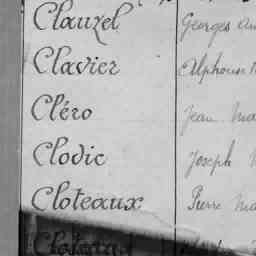 Clauzel Georges
Clavier Alphonse
Cléro Jean
Clodic Joseph
Cloteaux Pierre